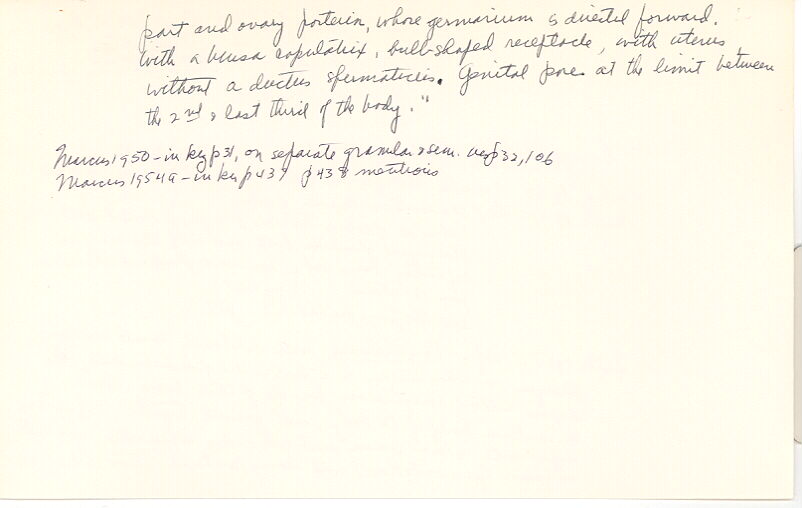 part and ovary posterior, whose germarium is directed forward.
with a bursa copulatrix, bulb-shaped receptacle, with uterus,
without a ductus spermaticus. Genital pore at the limit between
the 2nd & last third of the body."
Marcus 1950 - in key p31, on separate granular & sem. ves p32, 106
Marcus 1954a - in key p437 p438 mentions